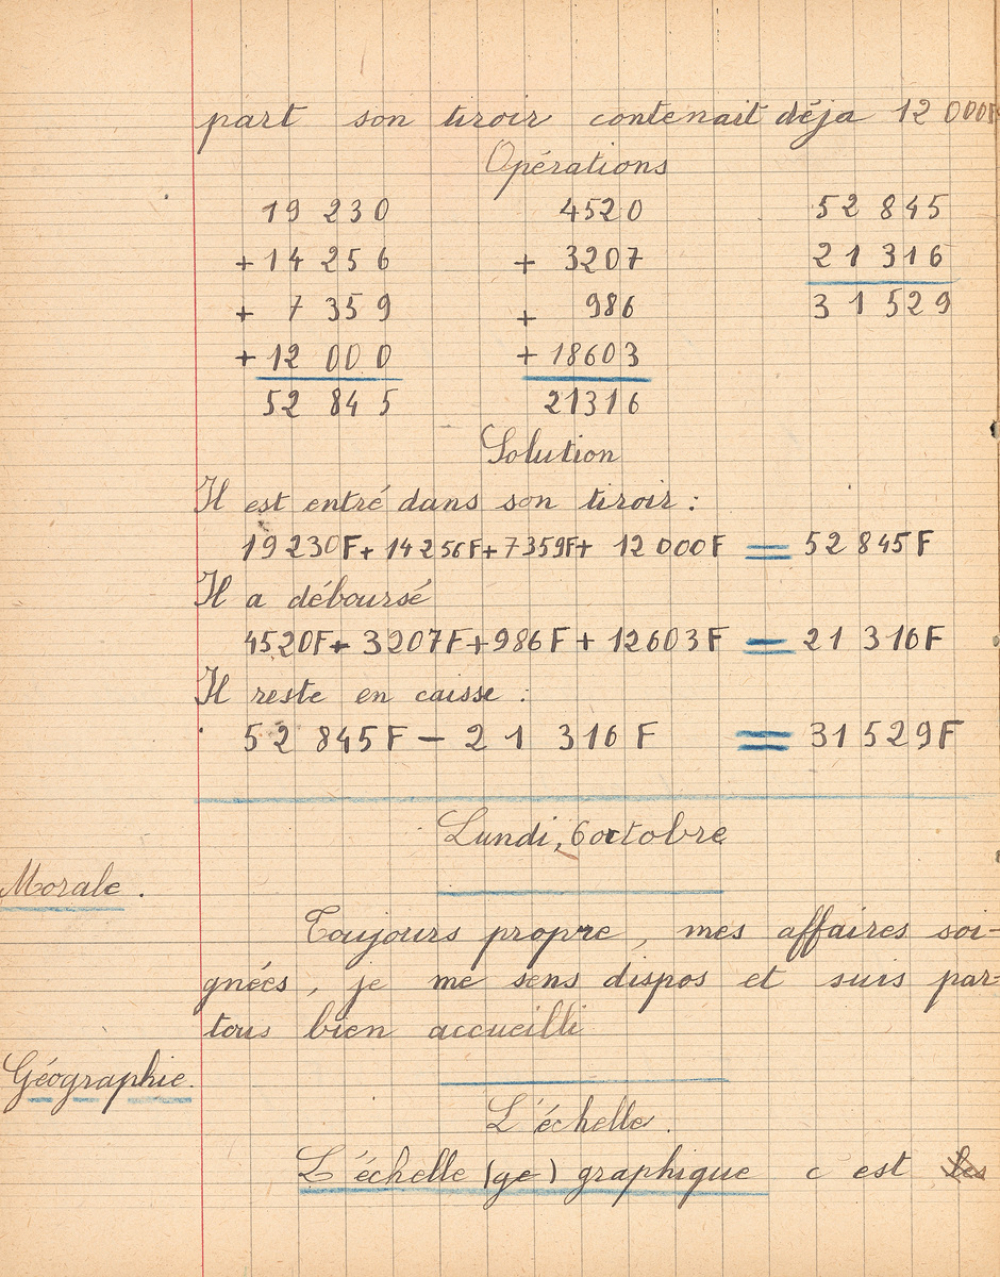 part son tiroir contenait déja 12 000F
Opérations
19 230 4520 52 845
+ 14 256 + 3207 21 316
+ 7 359 + 986 31 529
+ 12 000 + 18603
52 845 21316
Solution
Il est entré dans son tiroir :
19 230F + 14 256F + 7359F + 12 000F = 52 845F
Il a déboursé
4520F + 3207F + 986F + 12603F = 21 316F
Il reste en caisse :
52 845F - 21 316F = 31 529F
Lundi, 6 octobre
Morale.
Toujours propre, mes affaires soi-
gnées, je me sens dispos et suis par-
tous bien accueilli
Géographie.
L'échelle.
L'échelle (ge) graphique c'est les